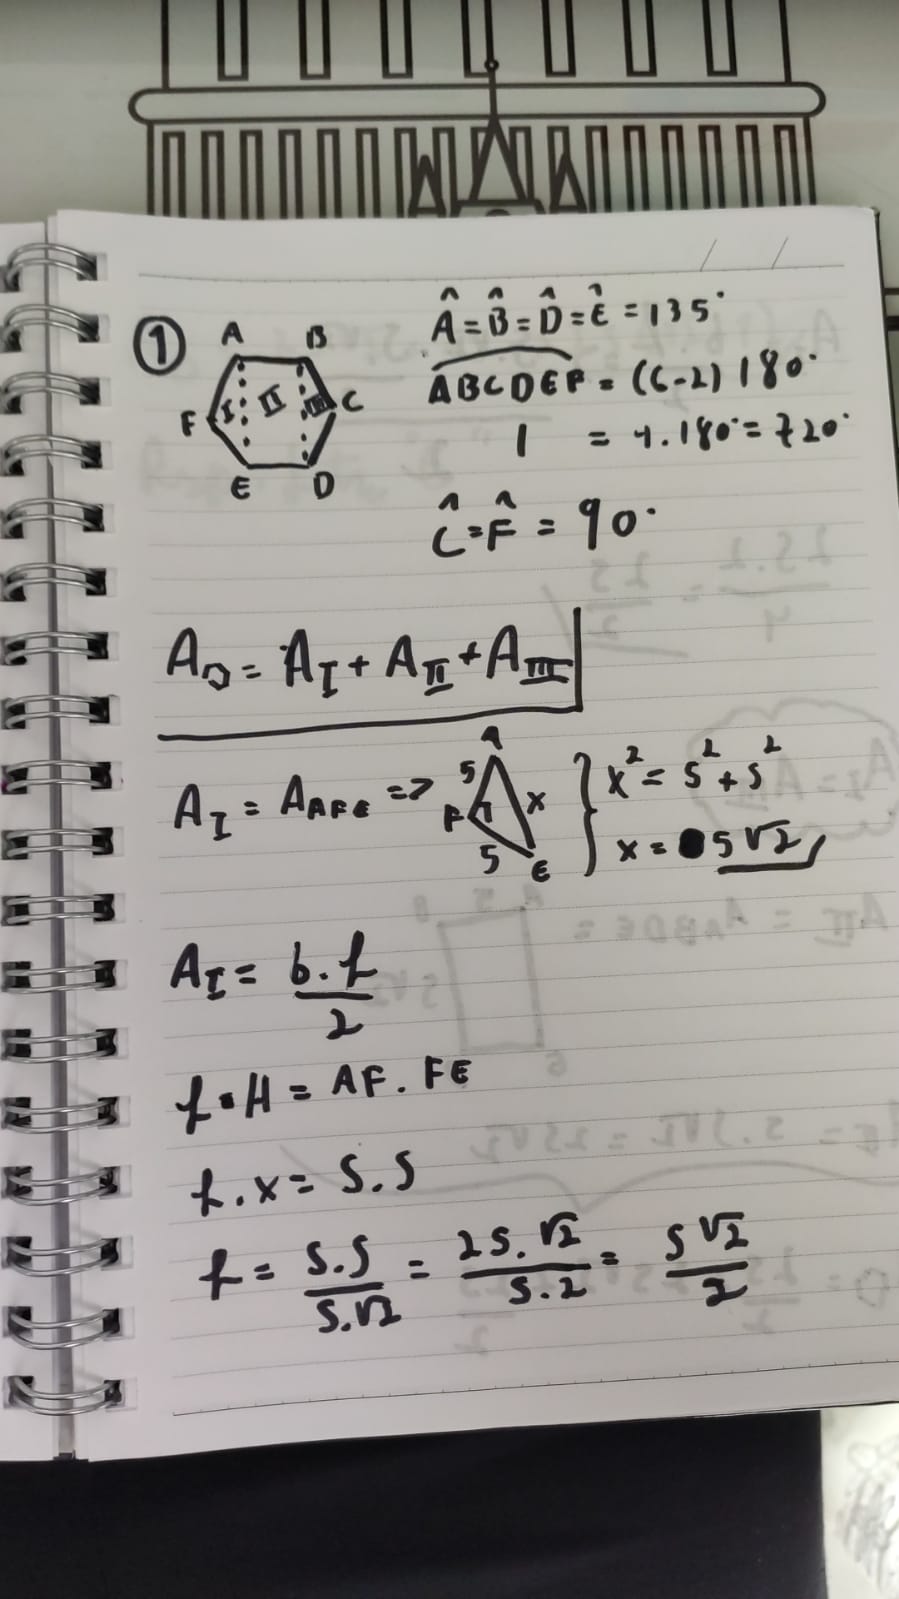 ① A B
F I II III C
E D
Â = B̂ = D̂ = Ê = 135°
ABCDEF = (6-2) 180°
= 4.180° = 720°
Ĉ = F̂ = 90°
A = A_I + A_II + A_III
A_I = A_AFE => A 5 F x 5 E } x² = 5² + 5²
x = 5√2
A_I = b.h/2
h.H = AF.FE
h.x = 5.5
h = 5.5/5.√2 = 25.√2/5.2 = 5√2/2